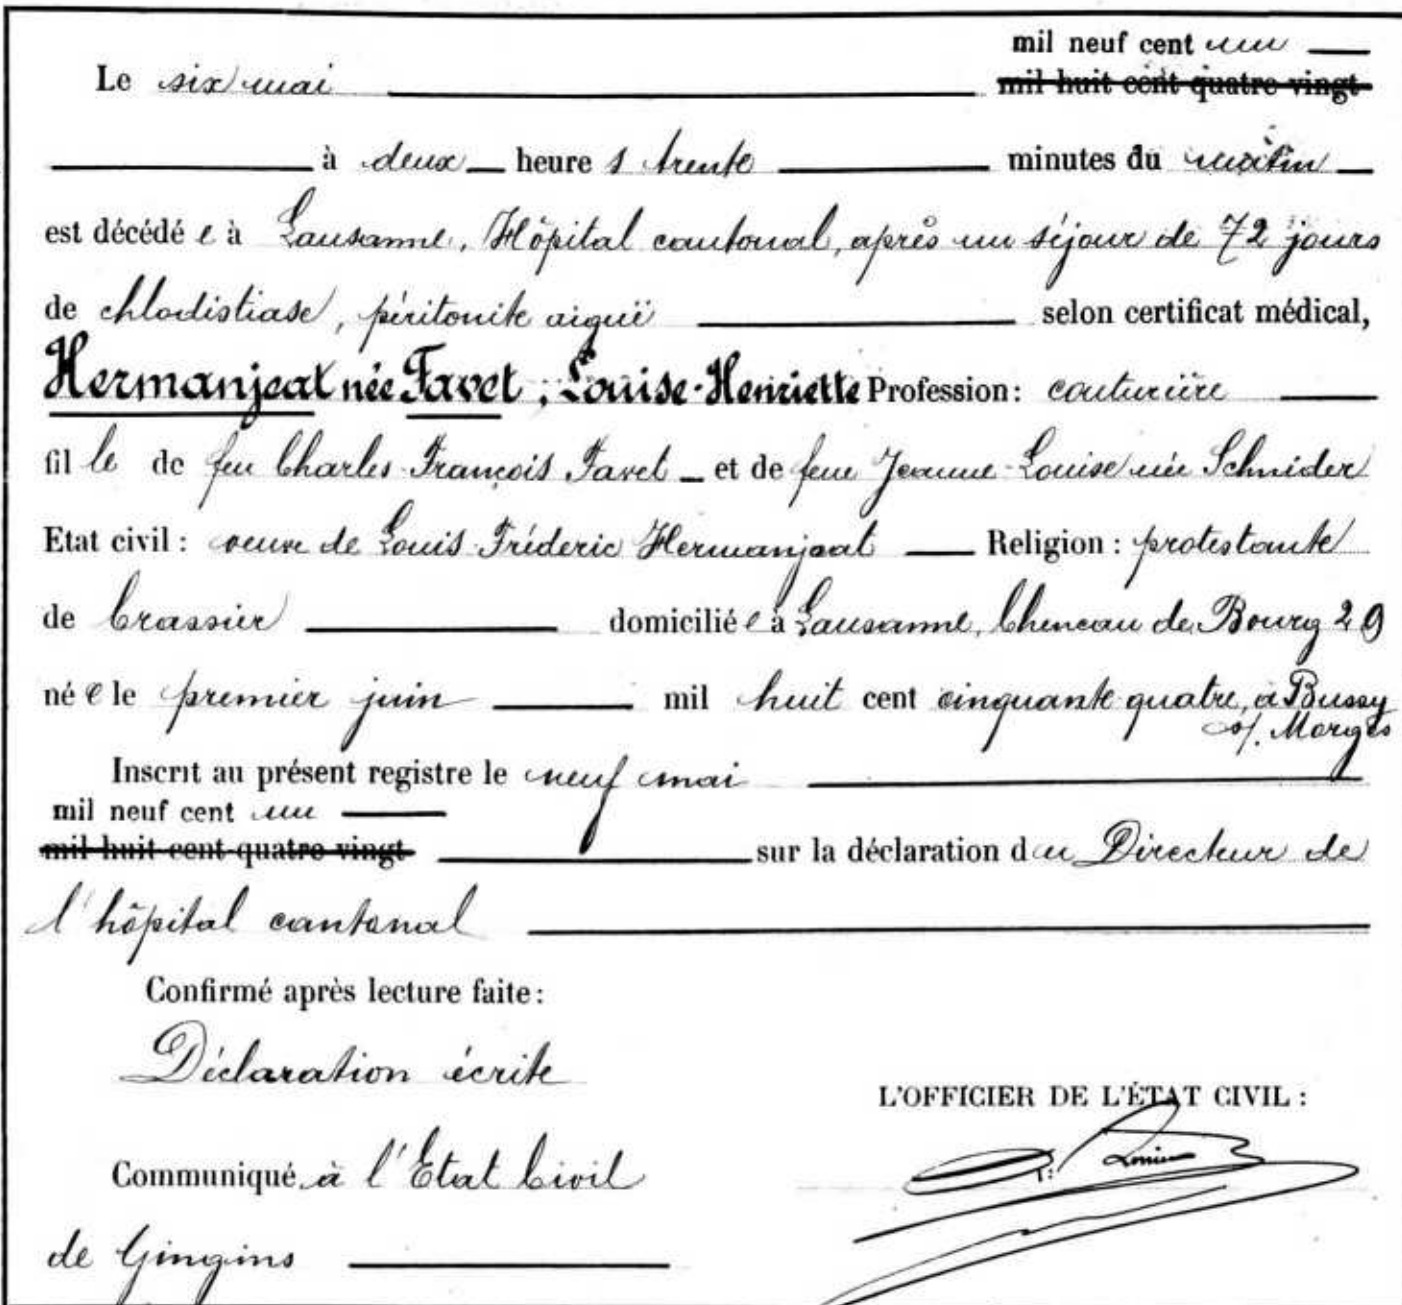 mil neuf cent un
Le six mai mil huit cent quatre vingt
à deux heure s trente minutes du matin
est décédé e à Lausanne, Hôpital cantonal, après un séjour de 72 jours
de chlodistiase, péritonite aiguë selon certificat médical,
Hermanjeat née Favet, Louise-Henriette Profession: couturière
fil le de feu Charles-François Favet et de feue Jeanne-Louise née Schnider
Etat civil: veuve de Louis-Fréderic Hermanjeat Religion: protestante
de Crassier domicilié e à Lausanne, Cheneau de Bourg 29
né e le premier juin mil huit cent cinquante quatre, à Bussy
s/. Morges
Inscrit au présent registre le neuf mai
mil neuf cent un
mil huit cent quatre vingt sur la déclaration du Directeur de
l'hôpital cantonal
Confirmé après lecture faite:
Déclaration écrite
L'OFFICIER DE L'ÉTAT CIVIL:
Communiqué à l'Etat Civil
de Gingins